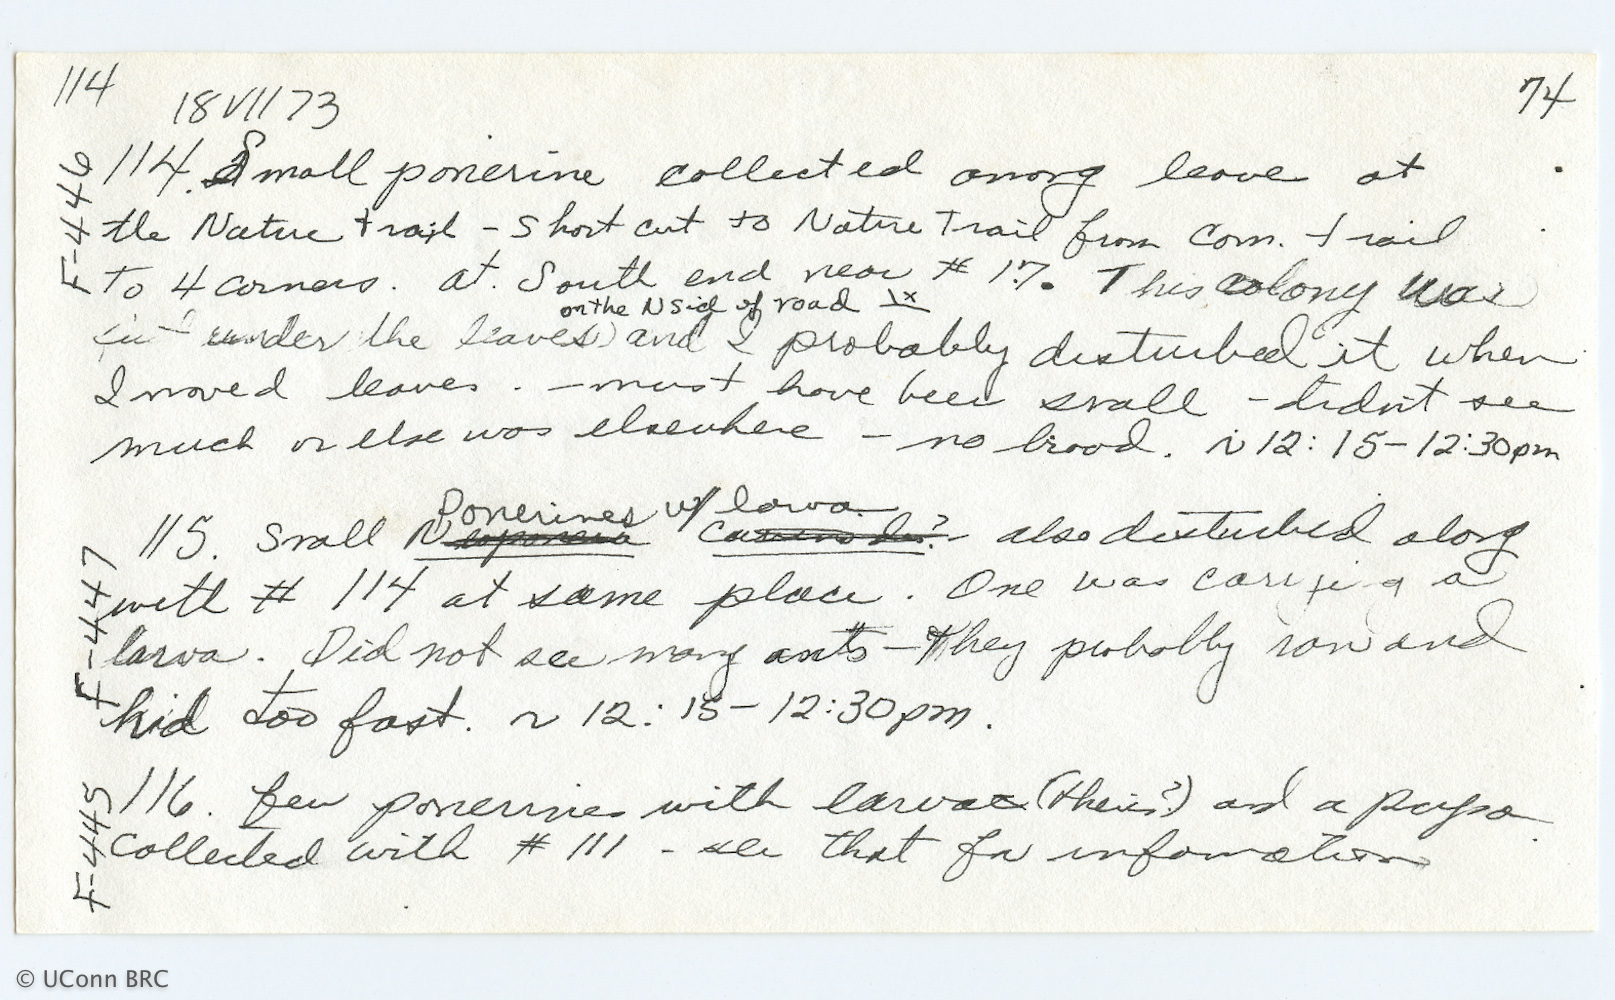 114
18 VII 73
74
F-446
114. Small ponerine collected among leave at
the Nature trail - Short cut to Nature Trail from Com. trail
to 4 corners. at. South end near # 17. This colony was
on the N sid of road
under the leaves and I probably disturbed it when
I moved leaves. - must have been small - didn't see
much or else was elsewhere - no brood. ~ 12:15-12:30pm
Ponerines w/ larva
F-447
115. Small - also disturbed along
with # 114 at same place. One was carrying a
larva. Did not see many ants - they probably ran and
hid too fast. ~ 12:15-12:30pm.
F-445
116. few ponerines with larvae (theirs?) and a pupa
collected with # 111 - see that for information
© UConn BRC